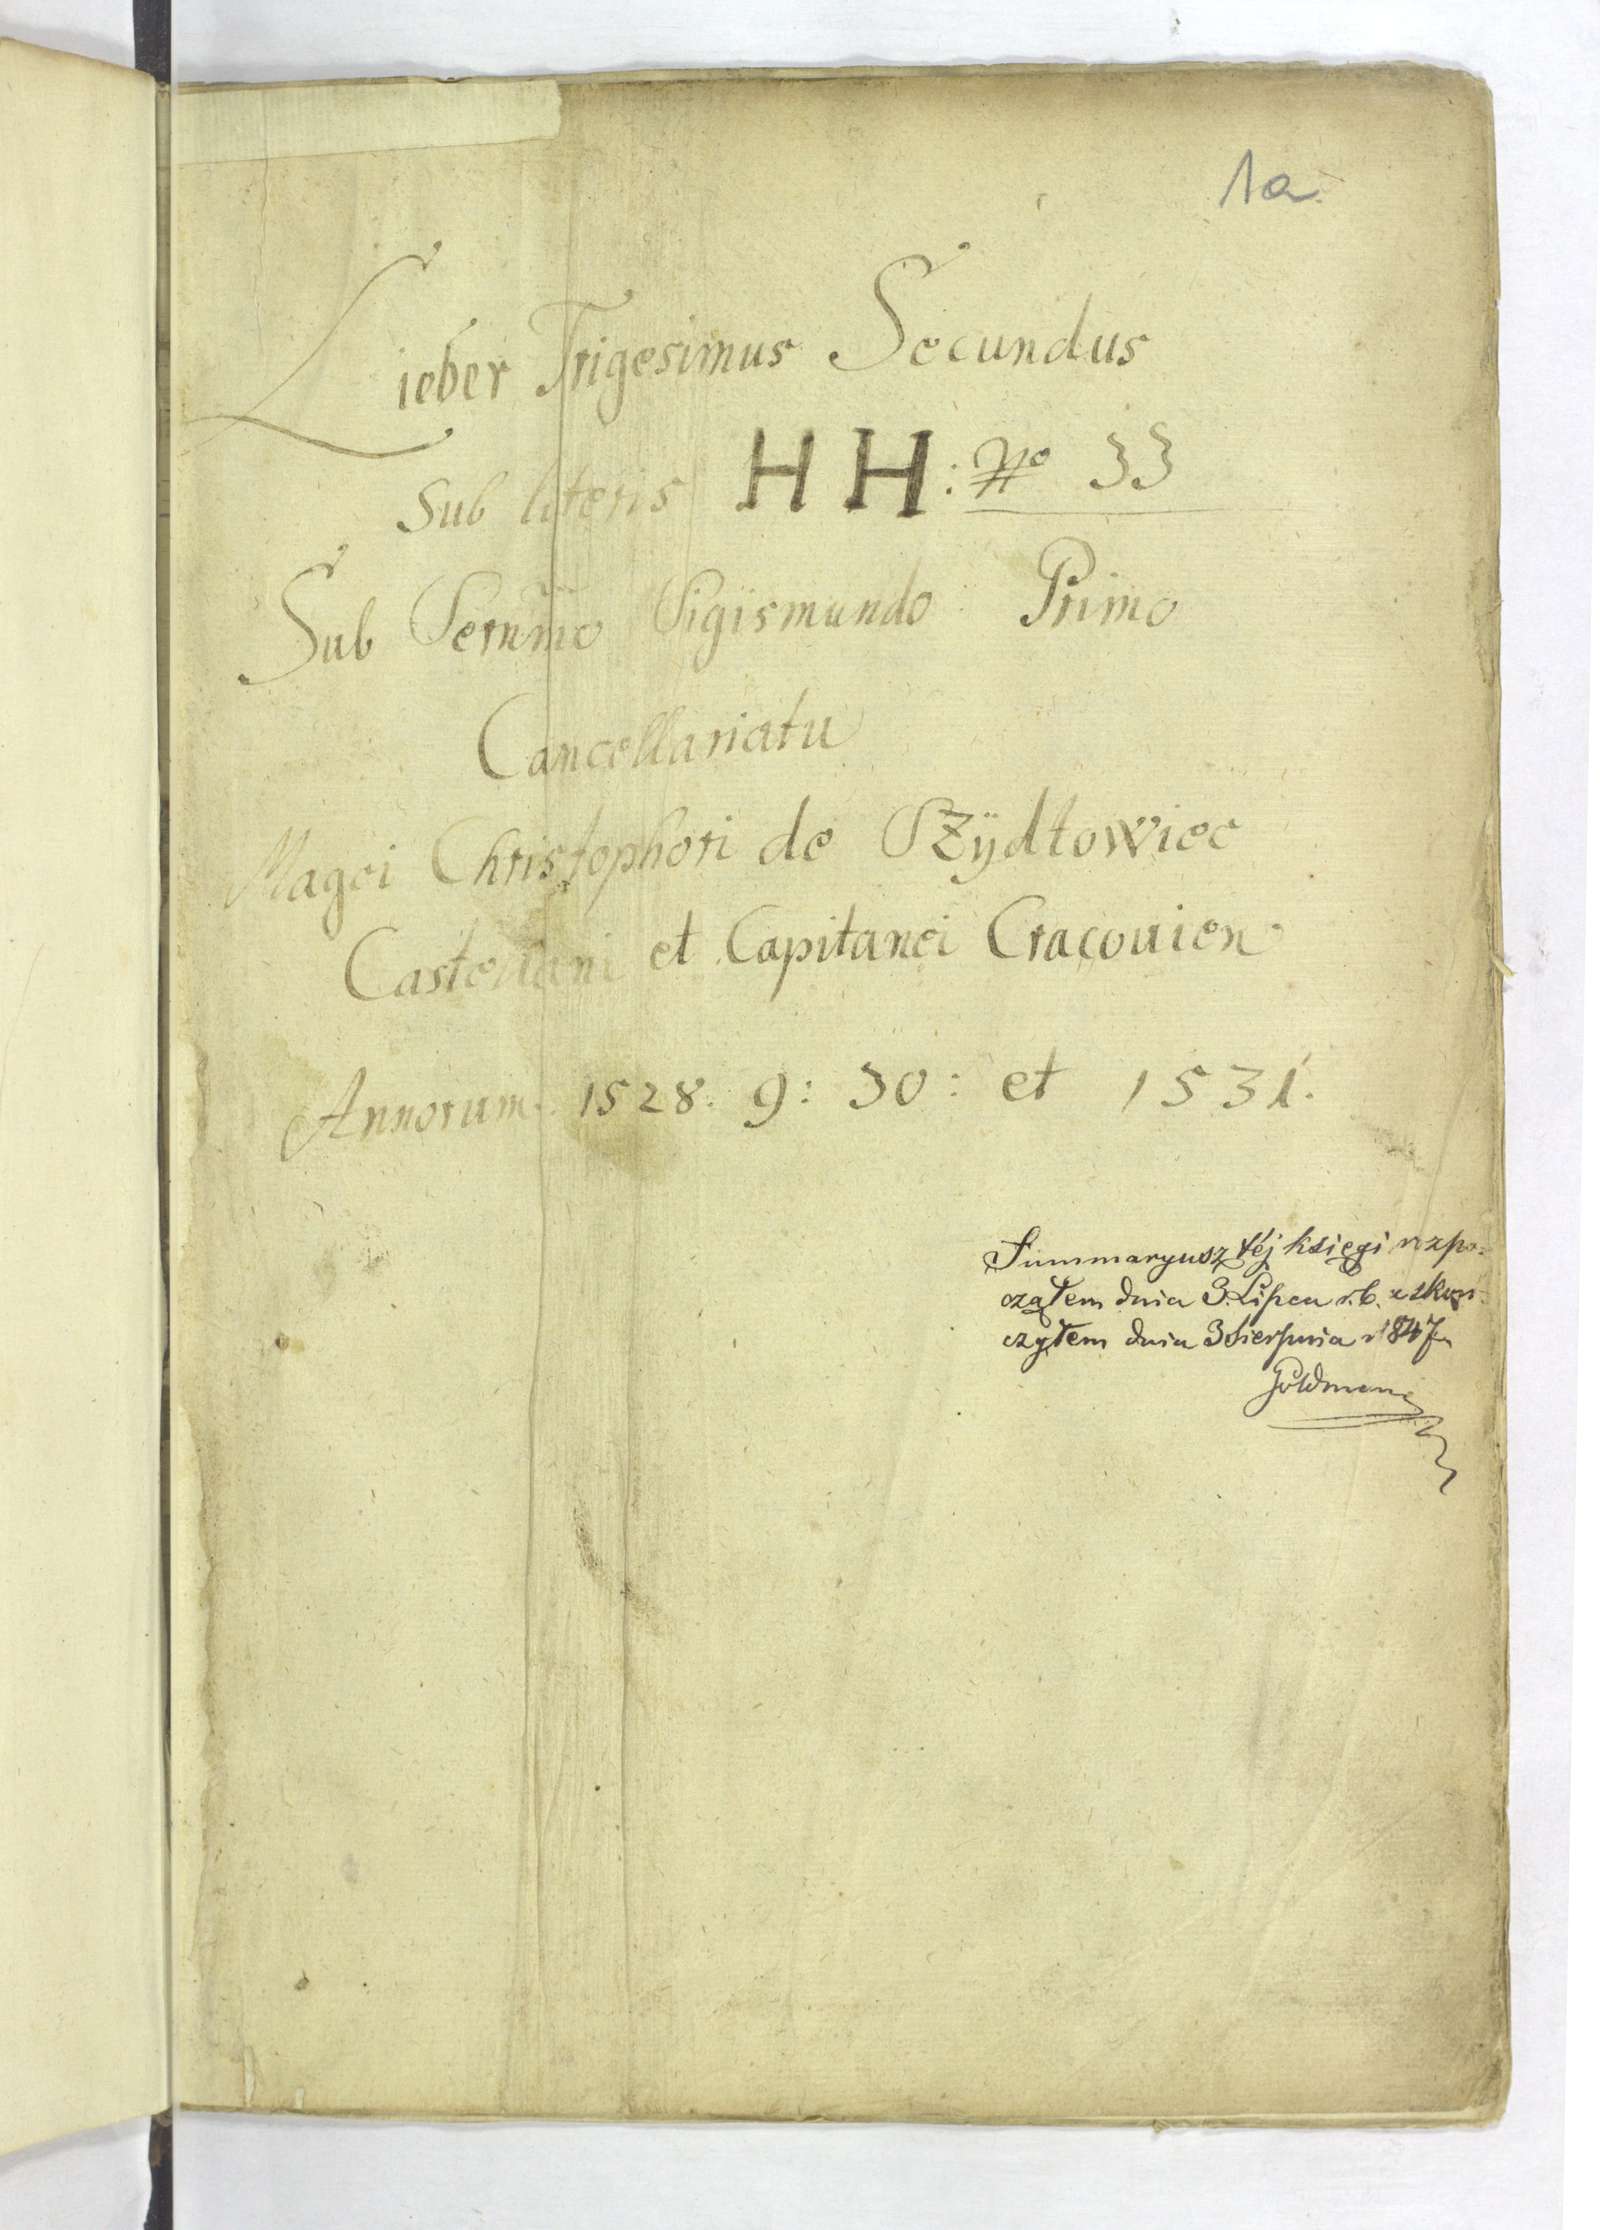 1a.
Lieber Trigesimus Secundus
Sub literis HH: No 33
Sub Sernmo Sigismundo Primo
Cancellariatu
Magci Christophori de Szÿdłowiec
Castellani et Capitanei Cracouien
Annorum. 1528. 9: 30: et 1531.
Summaryusz téj księgi rozpo-
cząłem dnia 3. Lipca r.b. a skoń-
czyłem dnia 3 Sierpnia r 1847
Goldmann